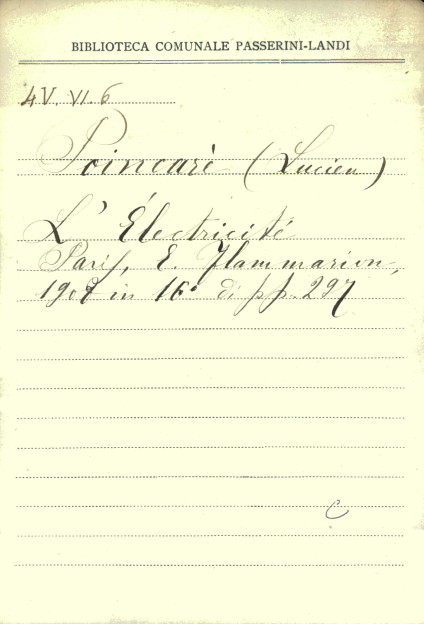 BIBLIOTECA COMUNALE PASSERINI-LANDI
4V. VI. 6
Poincarè (Lucien)
L' Électricité
Paris, E. Flammarion,
in 16° di pp. 297
C